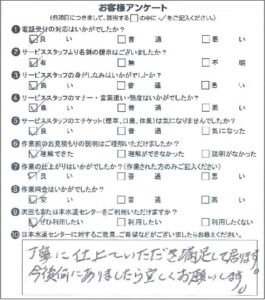 お客様アンケート
(各項目につきまして、該当する□の中に✓をご記入ください。)
❶電話受付の対応はいかがでしたか？
良い 普通 悪い
❷サービススタッフより名刺の提示はございましたか？
有 無 不明
❸サービススタッフの身だしなみはいかがでしたか？
良い 普通 悪い
❹サービススタッフのマナー・言葉遣い・態度はいかがでしたか？
良い 普通 悪い
❺サービススタッフのエチケット(煙草、口臭、体臭)は気になりませんでしたか？
良い 普通 気になった
❻作業前のお見積もりの説明はご理解いただけましたか？
理解できた 理解ができなかった 説明がなかった
❼作業の仕上がりはいかがでしたか？(作業された方のみご記入ください)
良い 普通 悪い
❽作業料金はいかがでしたか？
安い 普通 高い
❾次回も日本水道センターをご利用いただけますか？
ぜひ利用したい 利用したい 利用したくない
❿日本水道センターに対するご意見、ご希望などがございましたらお答えください。
丁寧に仕上ていただき満足して居ります。
今後何にありましたら宜しくお願いします。